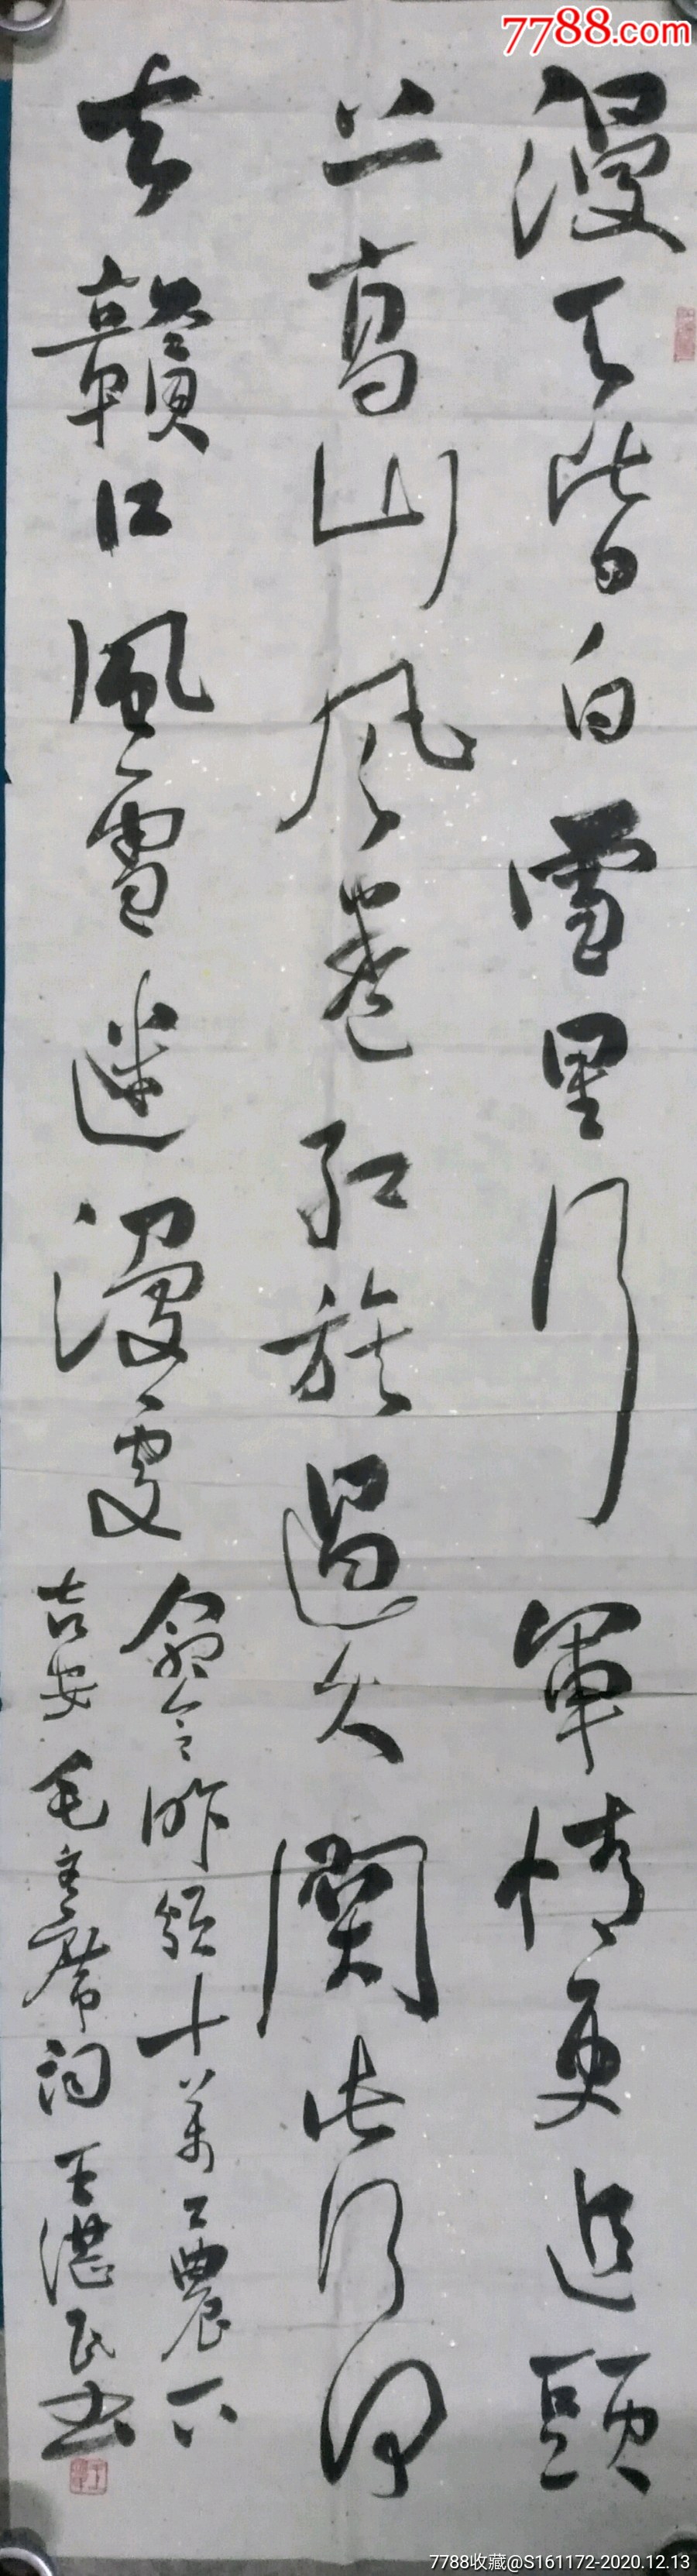 7788.com
漫天皆白雪里行軍情更迫頭
上高山风卷红旗過大関此行何
去贛江風雪迷漫處
命令昨頒十萬工農下
吉安 毛主席词 王湛民书
7788收藏@S161172-2020.12.13